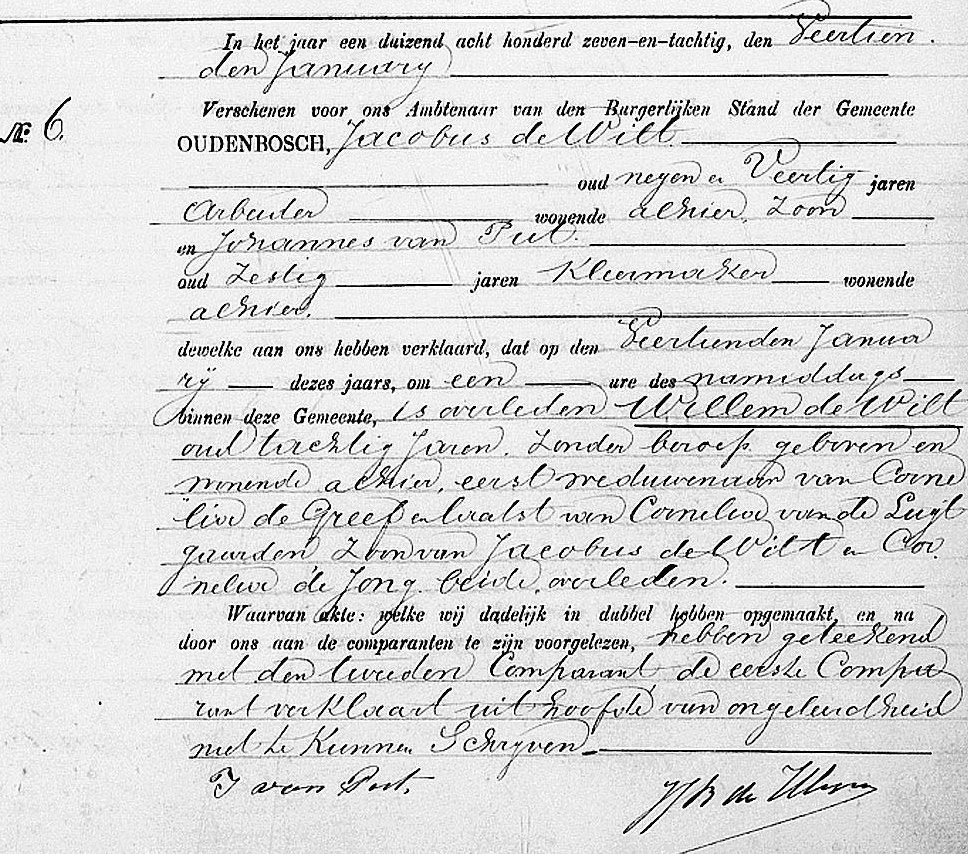 In het jaar een duizend acht honderd zeven-en-tachtig, den Veertien
den January
No 6.
Verschenen voor ons Ambtenaar van den Burgerlijken Stand der Gemeente
OUDENBOSCH, Jacobus de Wilt
oud negen en Veertig jaren
Arbeider wonende alhier, Zoon
en Johannes van Put.
oud Zestig jaren Kleermaker wonende
alhier.
dewelke aan ons hebben verklaard, dat op den Veertienden Janua
ry dezes jaars, om een ure des namiddags
binnen deze Gemeente, is overleden Willem de Wilt
oud tachtig Jaren. Zonder beroep geboren en
wonende alhier, eerst weduwenaar van Corne
lia de Greef en laatst van Cornelia van de Luijt
gaarden Zoon van Jacobus de Wilt en Cor
nelia de Jong beide overleden.
Waarvan akte: welke wij dadelijk in dubbel hebben opgemaakt, en na
door ons aan de comparanten te zijn voorgelezen, hebben geteekend
met den tweeden Comparant, de eerste Compa
rant verklaart uit hoofde van ongeleerdheid
niet te Kunnen Schryven
J van Put.